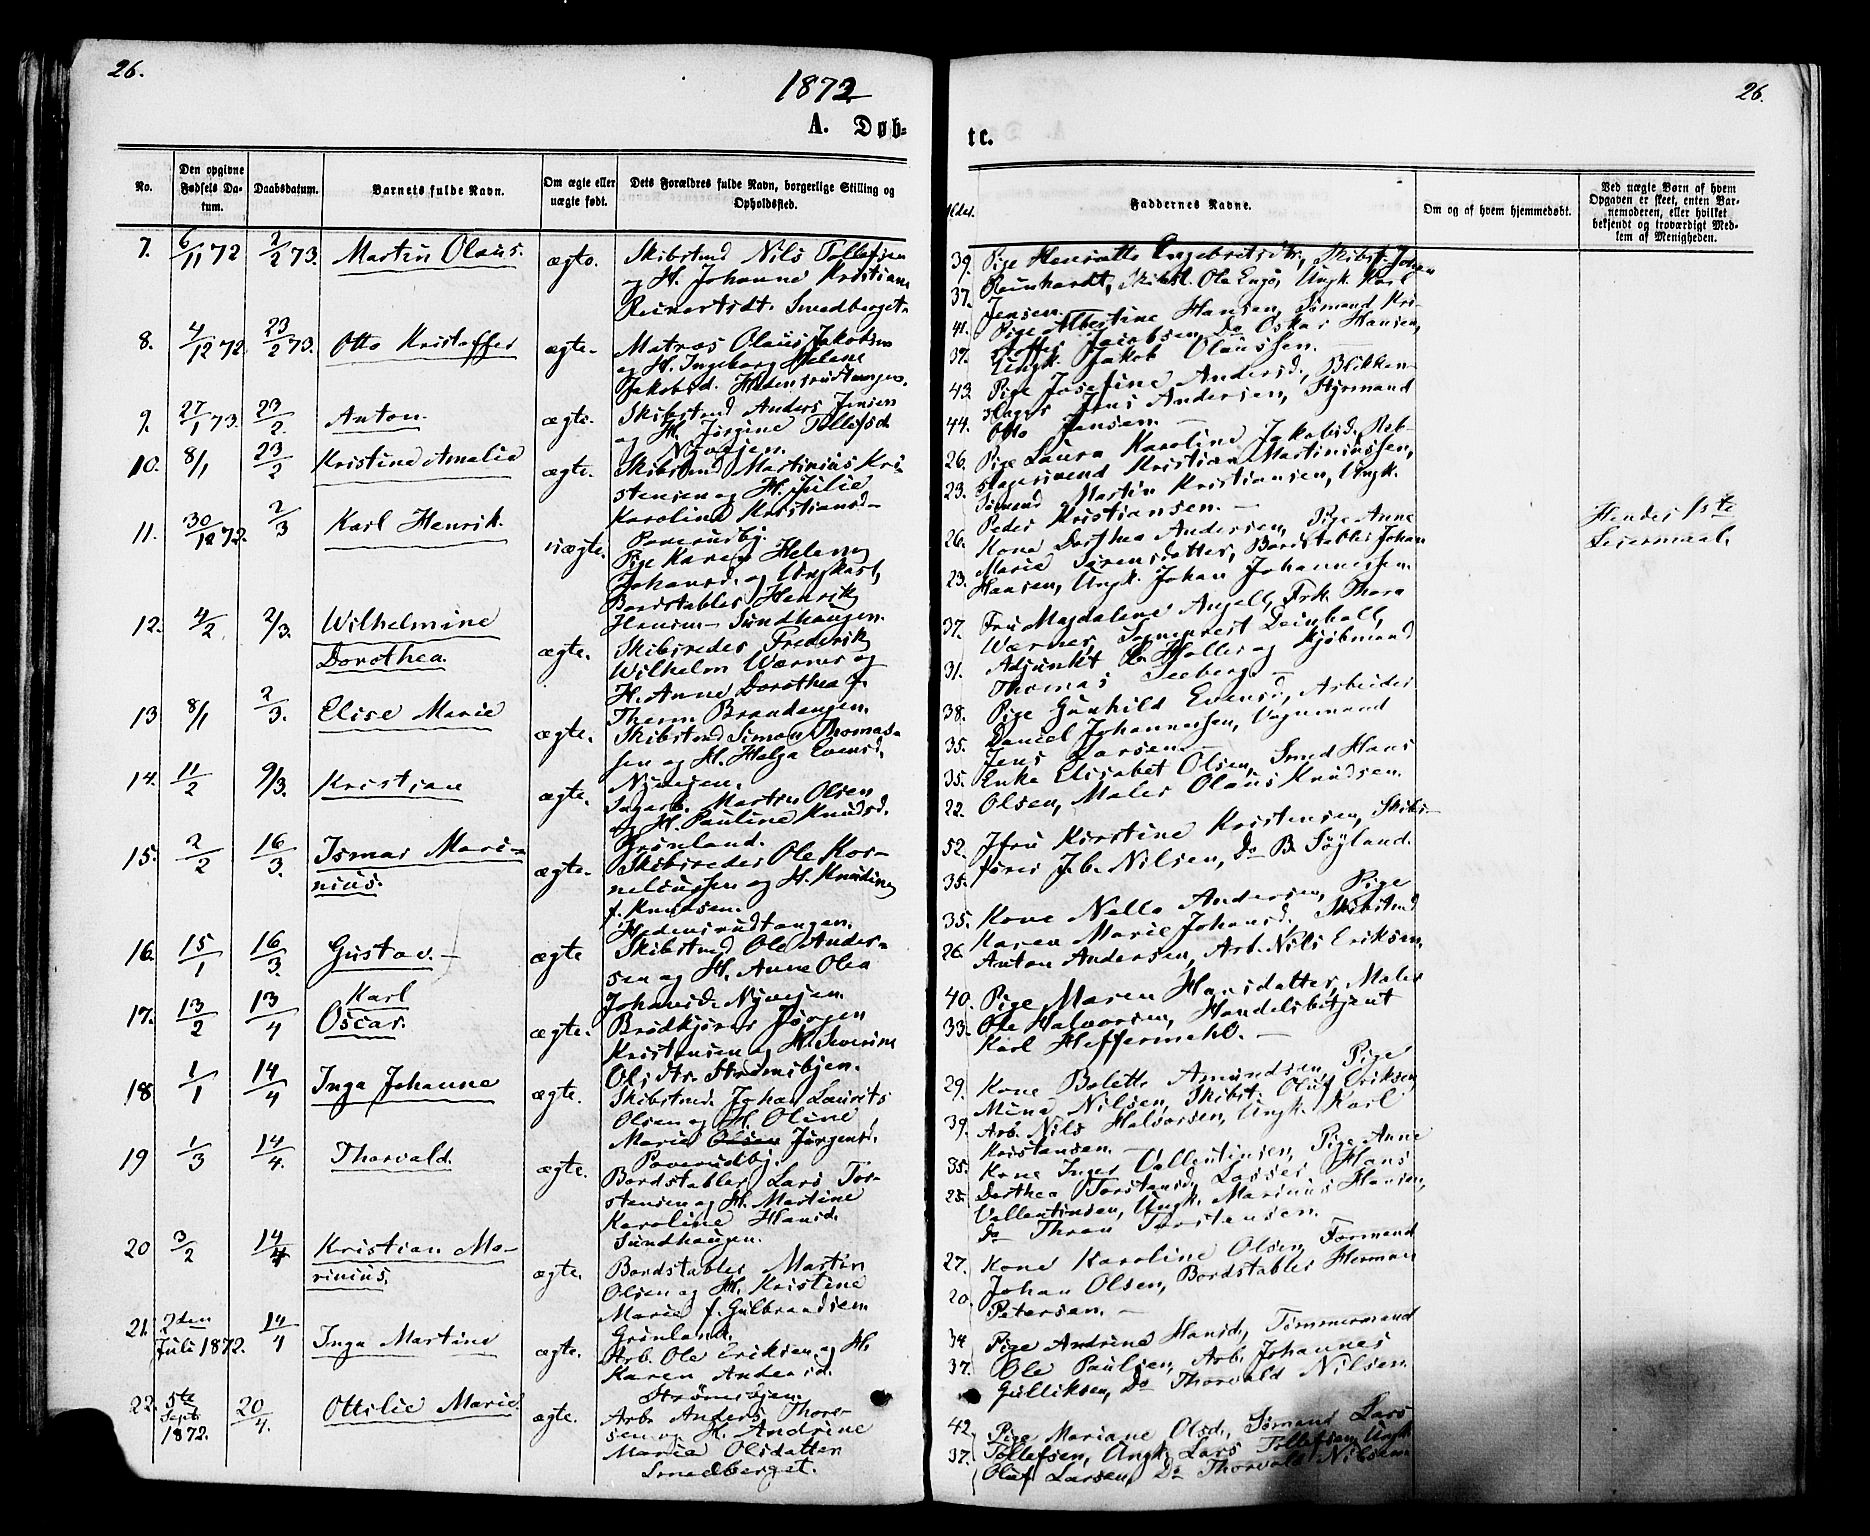 26.
1873
A. Døb-
No.
Den opgivne Fødsels Da-tum.
Daabsdatum.
Barnets fulde Navn.
Om ægte eller uægte født.
Dets Forældres fulde Navn, borgerlige Stilling og Opholdssted.
7. 6/11 72 2/2 73. Martin Olaus. ægte. Skibstmd Nils Tollefsen
og H. Johanne Kristiane
Reinertsdt. Smedberget.
8. 4/12 72. 23/2 73. Otto Kristoffer ægte. Matros Olaus Jakobsen
og H. Ingeborg Helene
Jakobsd. Hedensrudtangen.
9. 27/1 73. 23/2. Anton. ægte. Skibstmd Anders Jensen
og H. Jørgine Tollefsd.
Nyvejen.
10. 8/1 23/2 Kristine Amalie ægte. Skibstmd Martinius Kri-
stensen og H. Julie
Karoline Kristiansd.
Poverudbj.
11. 30/12 72. 2/3 Karl Henrik. uægte. Pige Karen Helene
Johansd. og Ungkarl,
Bordstabler Henrik
Hansen - Sundhaugen.
12. 4/2 2/3. Wilhelmine
Dorothea. ægte. Skibsreder Frederik
Wilhelm Wærner og
H. Anne Dorothea f.
Therm Brandengen.
13 8/1 2/3. Elise Marie ægte. Skibstmd Simon Thomas-
sen og H. Helga Evensd.
Nyvejen.
14. 11/2 9/3. Kristian ægte. Dagarb. Martin Olsen
og H. Pauline Knudsd.
Grønland.
15. 2/2 16/3. Ismar Mari-
nius. ægte. Skibsreder Ole Kor-
neliussen og H. Knudine
f. Knudsen.
Hedensrudtangen.
16. 15/1 16/3. Gustav. ægte Skibstmd Ole Ander-
sen og H. Anne Olea
Johansd. Nyvejen.
17. 13/2 13/4 Karl
Oscar. ægte. Brødkjører Jørgen
Kristensen og H. Severine
Olsdtr. Strømsbjen.
18 1/1 14/4 Inga Johanne ægte. Skibstmd. Johan Laurits
Olsen og H. Oline
Marie Olsen Jørgensd.
Poverudbj.
19 1/3 14/4. Thorvald. ægte. Bordstabler Lars Tor-
stensen og H. Martine
Karoline Hansd.
Sundhaugen.
20 3/2 14/4 Kristian Ma-
rinius. ægte. Bordstabler Martin
Olsen og H. Kristine
Marie f. Gulbrandsen
Grønland.
21. 2den
Juli 1872. 14/4 Inga Martine ægte. Arb. Ole Eriksen og H.
Karen Andersd.
22. 5te
Septr
1872. 20/4. Ottilie Marie. ægte. Arb. Anders Thore-
sen og H. Andrine
Maria Olsdatter
Smedberget.
26.
tc.
Alder.
Faddernes Navne.
Om og af hvem hjemmedøbt.
Ved uægte Børn af hvem Opgaven er skeet, enten Bar-nemoderen, eller hvilket bekjendt og troværdigt Med-lem af Menigheden.
39. Pige Henriette Engebretsdtr., Skibst. Johan
37. Reinhardt, Skibst. Ole Engø, Ungk. Karl
Jensen.
41. Pige Albertine Hansen, Sømand Kri-
39. stoffer Jacobsen, Do Oskar Hansen,
Ungk. Jakob Olaussen.
43. Pige Josefine Andersd., Blikken-
44. slager Jens Andersen, Styrmand
Otto Jensen.
26. Pige Laura Karoline Jakobsd., Reb-
23. slagersvend Kristian Martiniussen,
Sømand Martin Kristiansen, Ungk.
Peder Kristiansen.
26. Kone Dorthea Andersen, Pige Anne
23. Marie Sørensdatter, Bordstabler Johan
Hansen, Ungk. Johan Johannessen.
37. Fru Magdalene Angell, Frk. Thora
31. Wærner, Sognepræst Deinboll,
Adjunkt Holler og Kjøbmand
Thomas Seeberg.
38. Pige Gunhild Evensd., Arbeider
35. Daniel Johannessen, Vognmand
Jens Larsen.
35. Enke Elisabet Olsen, Smed Hans
22. Olsen, Maler Olaus Knudsen.
52. Jfru Kirstine Kristensen, Skibs-
35. fører J. b. Nilsen, Do B. Søyland.
35. Kone Nelle Andersen, Pige
26. Karen Marie Johansd., Skibstmd
Anton Andersen, Arb. Nils Eriksen.
40. Pige Maren Hansdatter, Maler
33. Ole Halvorsen, Handelsbetjent
Karl Heffermehl.
29. Kone Bolette Amundsen, Pige
Mina Nilsen, Skibst. Oluf Eriksen
39. Arb. Nils Halvorsen, Ungk. Karl
Kristansen.
35. Kone Inger Vallentinsen, Pige Anne
28. Dorthea Torstensd., Lasser Hans
Vallentinsen, Ungk. Marinus Hansen,
Do Thron Torstensen.
27. Kone Karoline Olsen, Formand
20. Johan Olsen, Bordstabler Herman
Petersen.
34 Pige Andrine Hansd., Tømmermand
37. Ole Paulsen, Arb. Johannes
Gulliksen, Do Thorvald Nilsen.
42. Pige Mariane Olsd., Sømand Lars
37. Tollefsen, Ungk. Lars Tollefsen, Ungk.
Oluf Larsen, Do Thorvald Nilsen.
Hendes 1ste
Leiermaal.